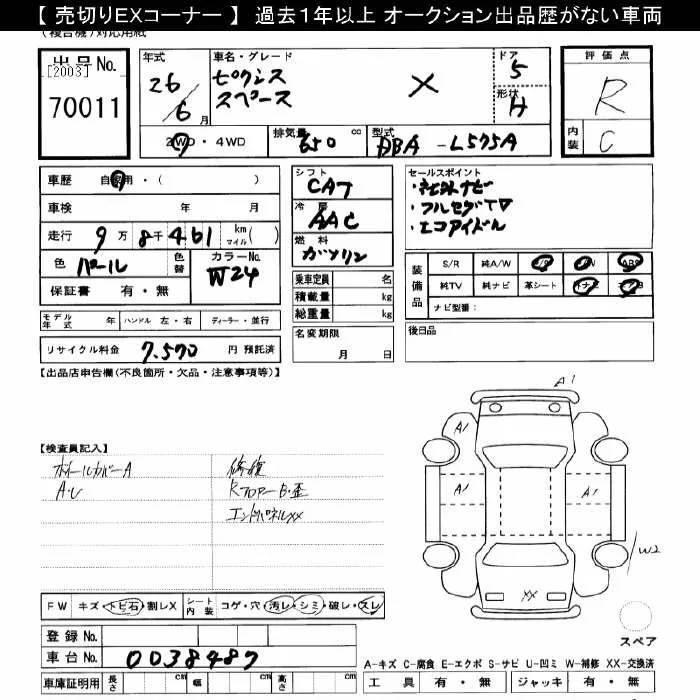 【 売切りEXコーナー 】 過去1年以上 オークション出品歴がない車両
(複合機)対応用紙
出品No.
[2003]
70011
年式
26/6月
車名・グレード
ピクシス
スペース
×
ドア
5
形状
H
評価点
R
内装
C
2WD・4WD
排気量 650 cc
型式 DBA -L575A
車歴 自家用・( )
車検 年 月
走行 9万 8千 461 km マイル( )
色 パール
色替
カラーNo. W24
保証書 有・無
シフト
CAT
冷房
AAC
燃料
ガソリン
乗車定員 名
積載量 kg
総重量 kg
セールスポイント
・社外ナビ
・フルセグTV
・エコアイドル
装備品
S/R 純A/W P/S P/W ABS
純TV 純ナビ 革シート
ナビ型番:
モデル年式 年 ハンドル 左・右 ディーラー・並行
名変期限
月 日
後日品
リサイクル料金 7.570 円 預託済
【出品店申告欄(不良箇所・欠品・注意事項等)】
【検査員記入】
ホイールカバーA
A・U
修復
RフロアーB・歪
エンドパネルXX
A1
A1
A1
A1
A1
W2
XX
スペア
FW キズ・トビ石・割レX
シート内装 コゲ・穴・汚レ・シミ・破レ・スレ
登録 No.
車台 No. 0038487
車庫証明用 長さ cm 幅 cm 高さ cm
A-キズ C-腐食 E-エクボ S-サビ U-凹ミ W-補修 XX-交換済
工具 有・無 ジャッキ 有・無